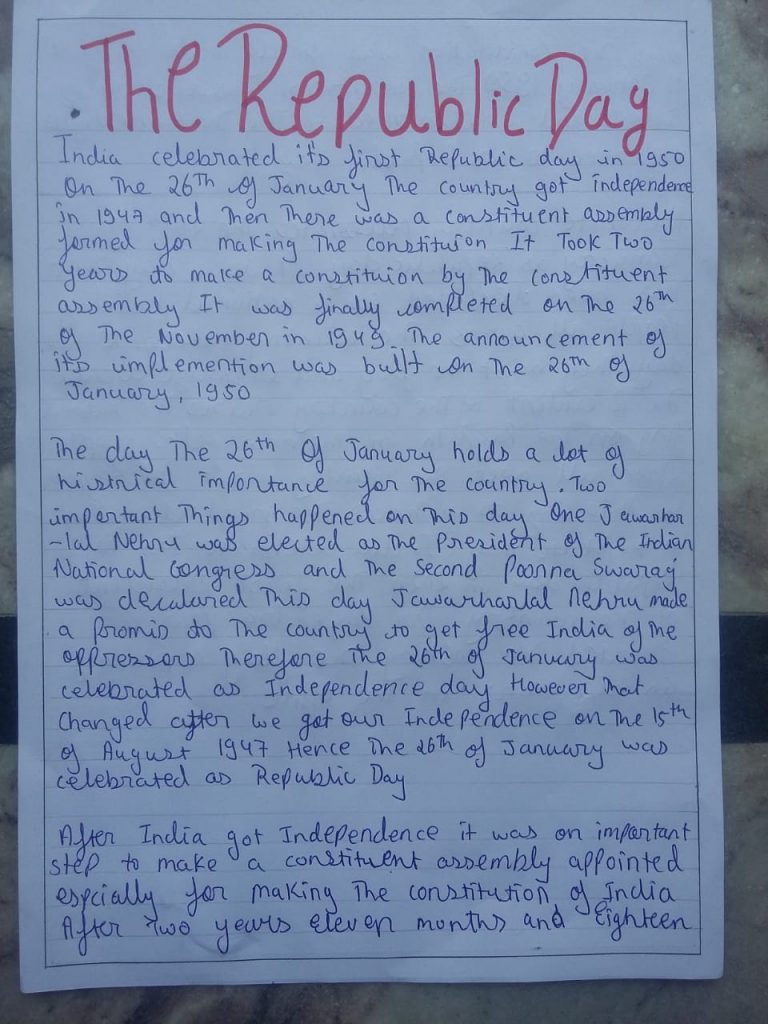 The Republic Day
India celebrated it's first Republic day in 1950
On The 26Th of January The country got independence
in 1947 and Then There was a constituent assembly
formed for making The constituion It Took Two
years to make a constituion by The constituent
assembly It was finally completed on The 26Th
of The November in 1949. The announcement of
its implemention was built on The 26Th of
January, 1950
The day The 26th Of January holds a lot of
histrical importance for The country. Two
important Things happened on This day One Jawarhar
-lal Nehru was elected as The President of The Indian
National Congress and The Second Poorna Swaraj
was decalared This day Jawarharlal Nehru made
a promis to The country to get free India of The
oppressors Therefore The 26th of January was
celebrated as Independence day However That
changed after we got our Independence on The 15th
of August 1947 Hence The 26th of January was
celebrated as Republic Day
After India got Independence it was on important
step to make a constituent assembly appointed
espcially for making The constitution of India
After Two years eleven months and Eighteen